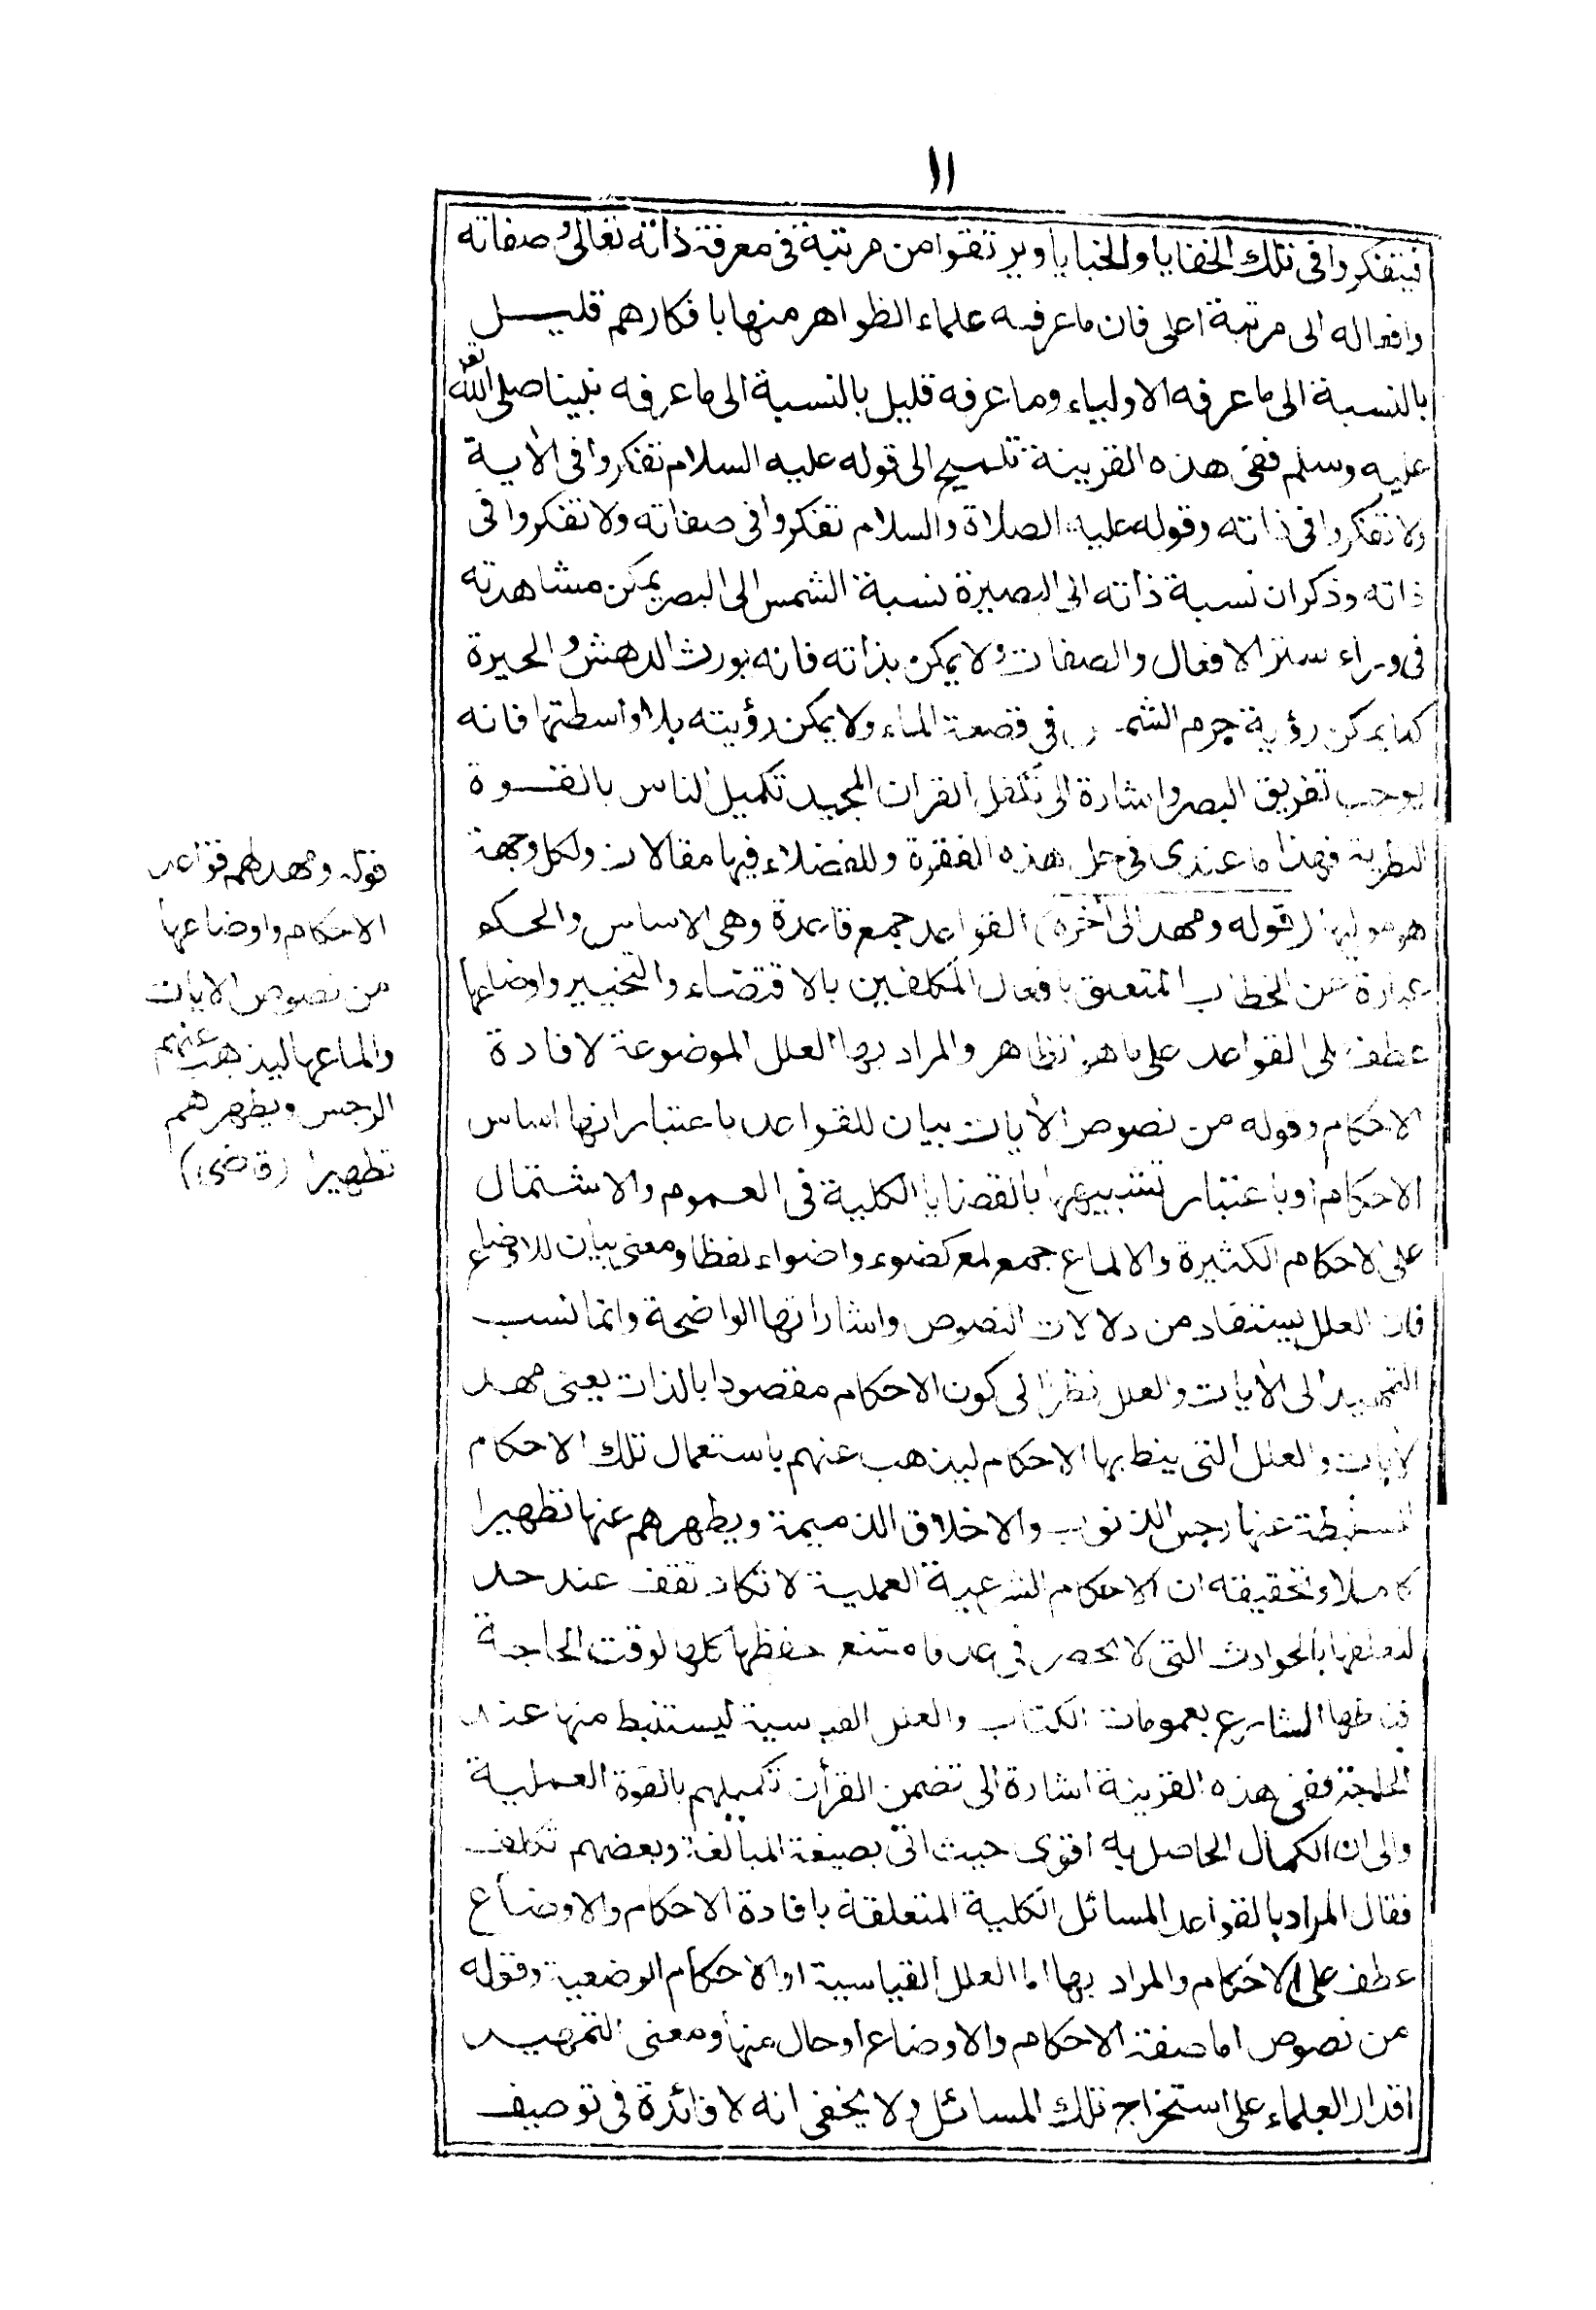 ١١
فيتفكروا فى تلك الخفايا والخبايا ويرتقوا من مرتبة فى معرفة ذاته تعالى وصفاته
وافعاله الى مرتبة اعلى فان ما عرفه علماء الظواهر منها بافكارهم قليل
بالنسبة الى ما عرفه الاولياء وما عرفه قليل بالنسبة الى ما عرفه نبينا صلى الله تع
عليه وسلم ففى هذه القرينة تلميح الى قوله عليه السلام تفكروا فى الأية
ولا تفكروا فى ذاته وقوله عليه الصلاة والسلام تفكروا فى صفاته ولا تفكروا فى
ذاته وذكر ان نسبة ذاته الى البصيرة نسبة الشمس الى البصر يمكن مشاهدته
فى وراء ستر الافعال والصفات ولا يمكن بذاته فانه يورث الدهش والحيرة
كما يمكن رؤية جرم الشمس فى قصعة الماء ولا يمكن رؤيته بلا واسطتها فانه
يوجب تفريق البصر واشارة الى تكفل القران المجيد تكميل الناس بالقوة
النظرية فهذا ما عندى فى حل هذه الفقرة وللفضلاء فيها مقالات ولكل وجهة
هو موليها (قوله ومهد الى أخره) القواعد جمع قاعدة وهى الاساس والحكم
عبارة عن الخطاب المتعلق بافعال المكلفين بالاقتضاء والتخيير واوضاعها
عطف على القواعد على ما هو الظاهر والمراد بها العلل الموضوعة لافادة
الاحكام وقوله من نصوص الأيات بيان للقواعد باعتبار انها اساس
الاحكام او باعتبار تشبيهها بالقضايا الكلية فى العموم والاشتمال
على الاحكام الكثيرة والالماع جمع لمع كضوء واضواء لفظا ومعنى بيان للاوضاع
فان العلل يستفاد من دلالات النصوص واشاراتها الواضحة وانما نسب
التمهيد الى الأيات والعلل نظرا الى كون الاحكام مقصودا بالذات يعنى مهد
الأيات والعلل التى ينط بها الاحكام ليذهب عنهم باستعمال تلك الاحكام
المستنبطة عنها رجس الذنوب والاخلاق الذميمة ويطهرهم عنها تطهيرا
كاملا وتحقيقه ان الاحكام الشرعية العملية لا تكاد تقف عند حد
لتعلقها بالحوادث التى لا تحصر فى عدد فامتنع حفظها كلها لوقت الحاجة
فناطها الشارع بعمومات الكتاب والعلل القياسية ليستنبط منها عند
الحاجة ففى هذه القرينة اشارة الى تضمن القرأن تكميلهم بالقوة العملية
والى ان الكمال الحاصل به اقوى حيث اتى بصيغة المبالغة وبعضهم تكلف
فقال المراد بالقواعد المسائل الكلية المتعلقة بافادة الاحكام والاوضاع
عطف على الاحكام والمراد بها اما العلل القياسية او الاحكام الوضعية وقوله
من نصوص اما صفة الاحكام والاوضاع او حال عنها ومعنى التمهيد
اقدار العلماء على استخراج تلك المسائل ولا يخفى انه لا فائدة فى توصيف
قوله ومهد لهم قواعد
الاحكام واوضاعها
من نصوص الايات
والماعها ليذهب عنهم
الرجس ويطهرهم
تطهيرا (قاضى)